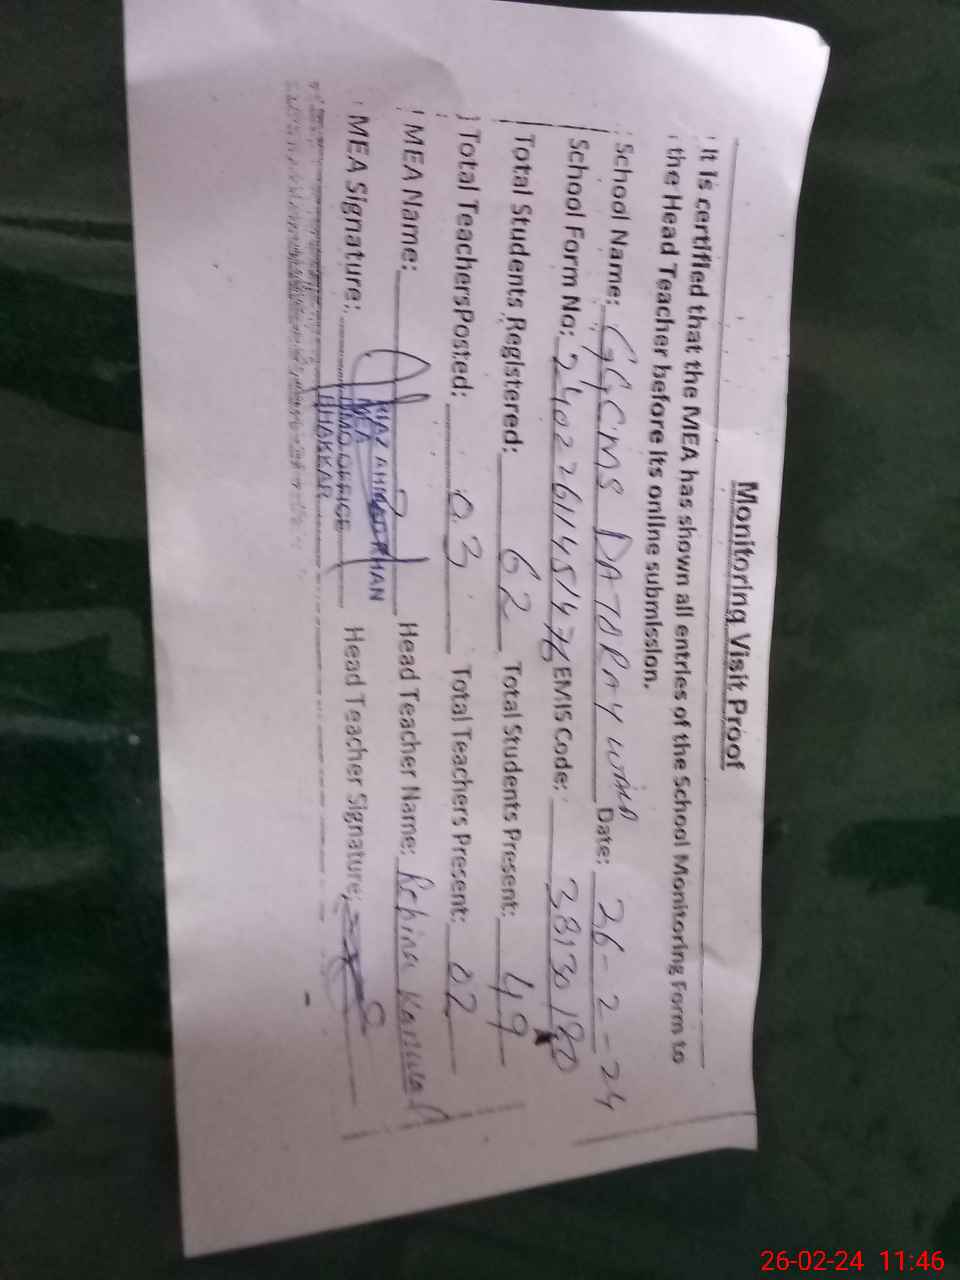 Monitoring Visit Proof
It is certified that the MEA has shown all entries of the School Monitoring Form to
the Head Teacher before its online submission.
School Name: GGCMS DATORAY WALA Date: 26-2-24
School Form No: 24022611451476 EMIS Code: 38130180
Total Students Registered: 62 Total Students Present: 49
Total TeachersPosted: 03 Total Teachers Present: 02
MEA Name: Head Teacher Name: Rehina Kanwal
MEA Signature: Head Teacher Signature:
AHMAD KHAN
MEA
DMO OFFICE
BHAKKAR
26-02-24 11:46